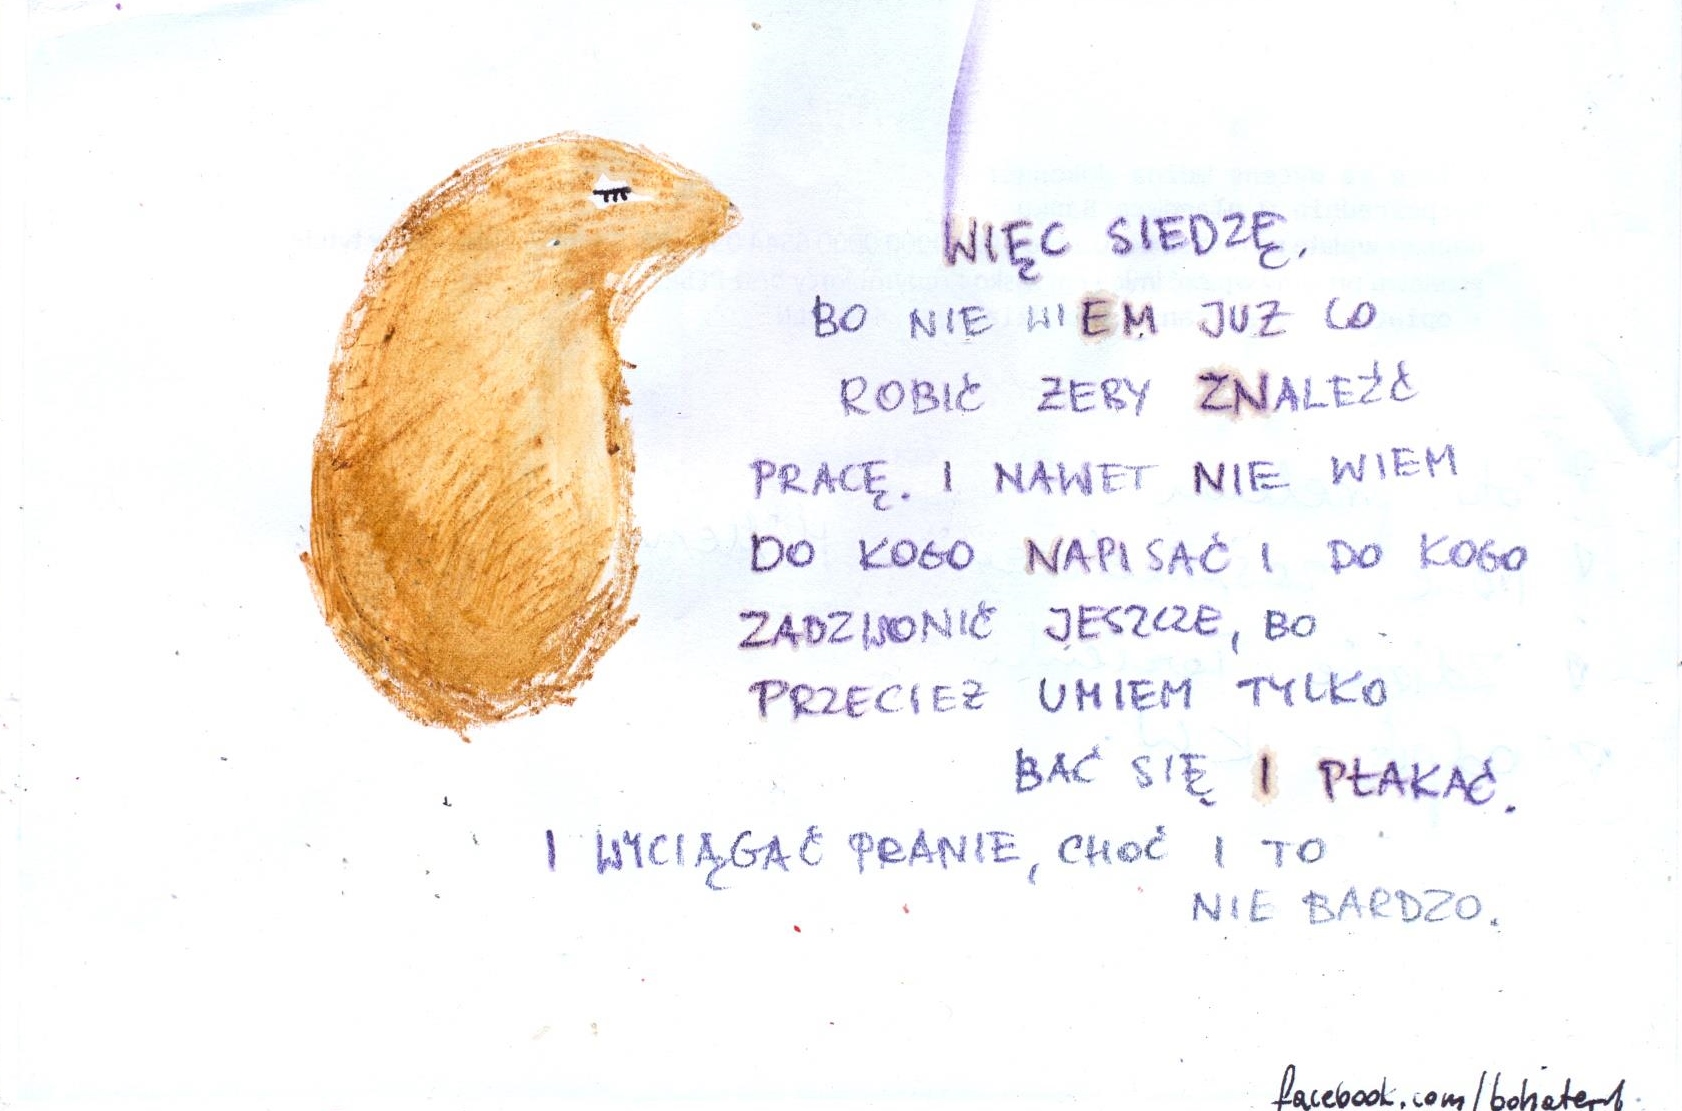 WIĘC SIEDZĘ,
BO NIE WIEM JUŻ CO
ROBIĆ ŻEBY ZNALEŹĆ
PRACĘ. I NAWET NIE WIEM
DO KOGO NAPISAĆ I DO KOGO
ZADZWONIĆ JESZCZE, BO
PRZECIEŻ UMIEM TYLKO
BAĆ SIĘ I PŁAKAĆ.
I WYCIĄGAĆ PRANIE, CHOĆ I TO
NIE BARDZO.